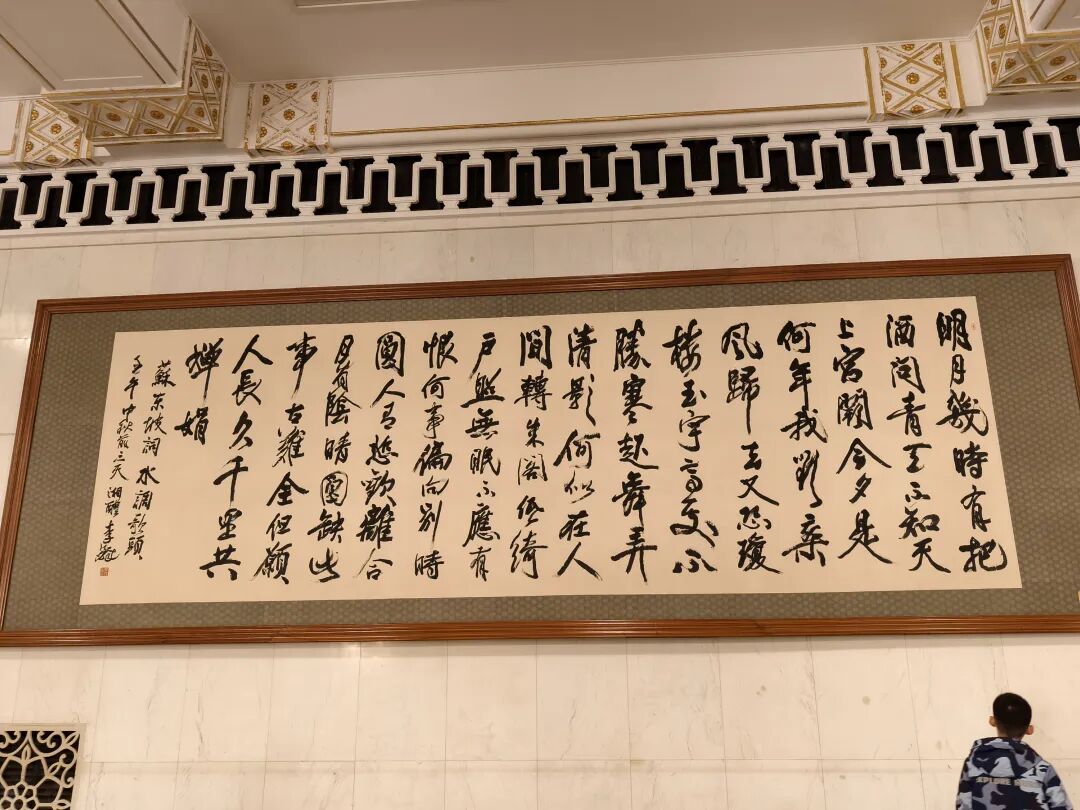 明月幾時有把
酒問青天不知天
上宮闕今夕是
何年我欲乘
風歸去又恐瓊
樓玉宇高處不
勝寒起舞弄
清影何似在人
間轉朱閣低綺
戶照無眠不應有
恨何事偏向別時
圓人有悲歡離合
月有陰晴圓缺此
事古難全但願
人長久千里共
嬋娟
蘇東坡詞水調歌頭
壬午中秋前三天湘醴李鐸
EXPLORE